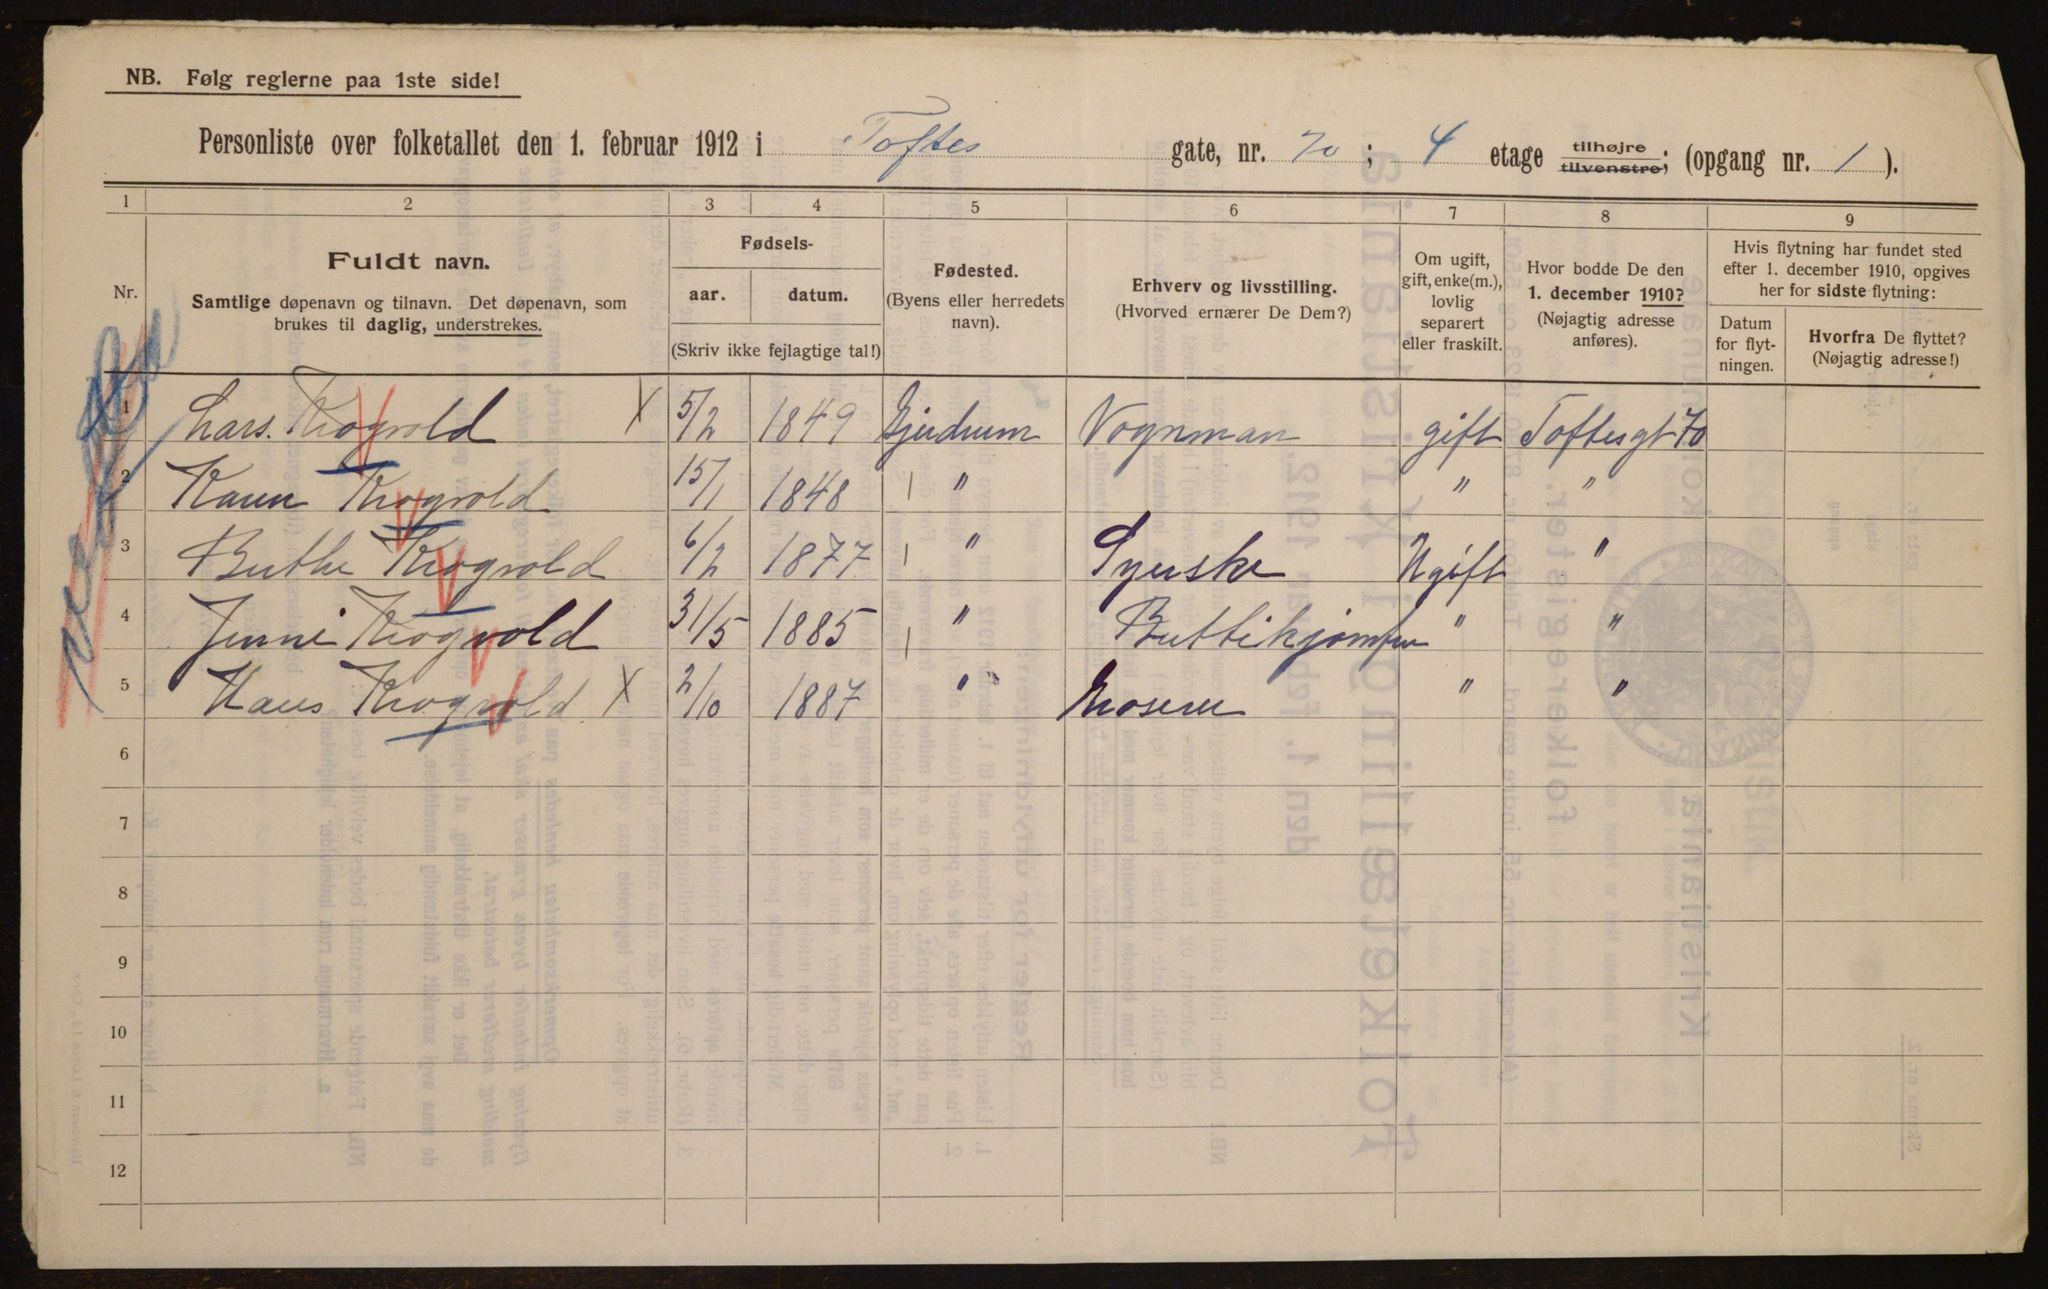 NB. Følg reglerne paa 1ste side!
Personliste over folketallet den 1. februar 1912 i Toftes gate, nr. 70; 4 etage tilhøjre tilvenstre; (opgang nr. 1).
1 2 3 4 5 6 7 8 9
Nr.
Fuldt navn.
Samtlige døpenavn og tilnavn. Det døpenavn, som
brukes til daglig, understrekes.
Fødsels-
aar. datum.
(Skriv ikke fejlagtige tal!)
Fødested.
(Byens eller herredets
navn).
Erhverv og livsstilling.
(Hvorved ernærer De Dem?)
Om ugift,
gift, enke(m.),
lovlig
separert
eller fraskilt.
Hvor bodde De den
1. december 1910?
(Nøjagtig adresse
anføres).
Hvis flytning har fundet sted
efter 1. december 1910, opgives
her for sidste flytning:
Datum
for flyt-
ningen.
Hvorfra De flyttet?
(Nøjagtig adresse!)
1 Lars. Krogvold X 5/2 1849 Gjerdrum Vognman gift Toftesgt 70
2 Karen Krogvold 15/1 1848 " " "
3 Berthe Krogvold 6/2 1877 " Syerske Ugift "
4 Jenni Krogvold 31/5 1885 " Buttikjomfru " "
5 Hans Krogvold X 2/10 1887 " " "
6
7
8
9
10
11
12